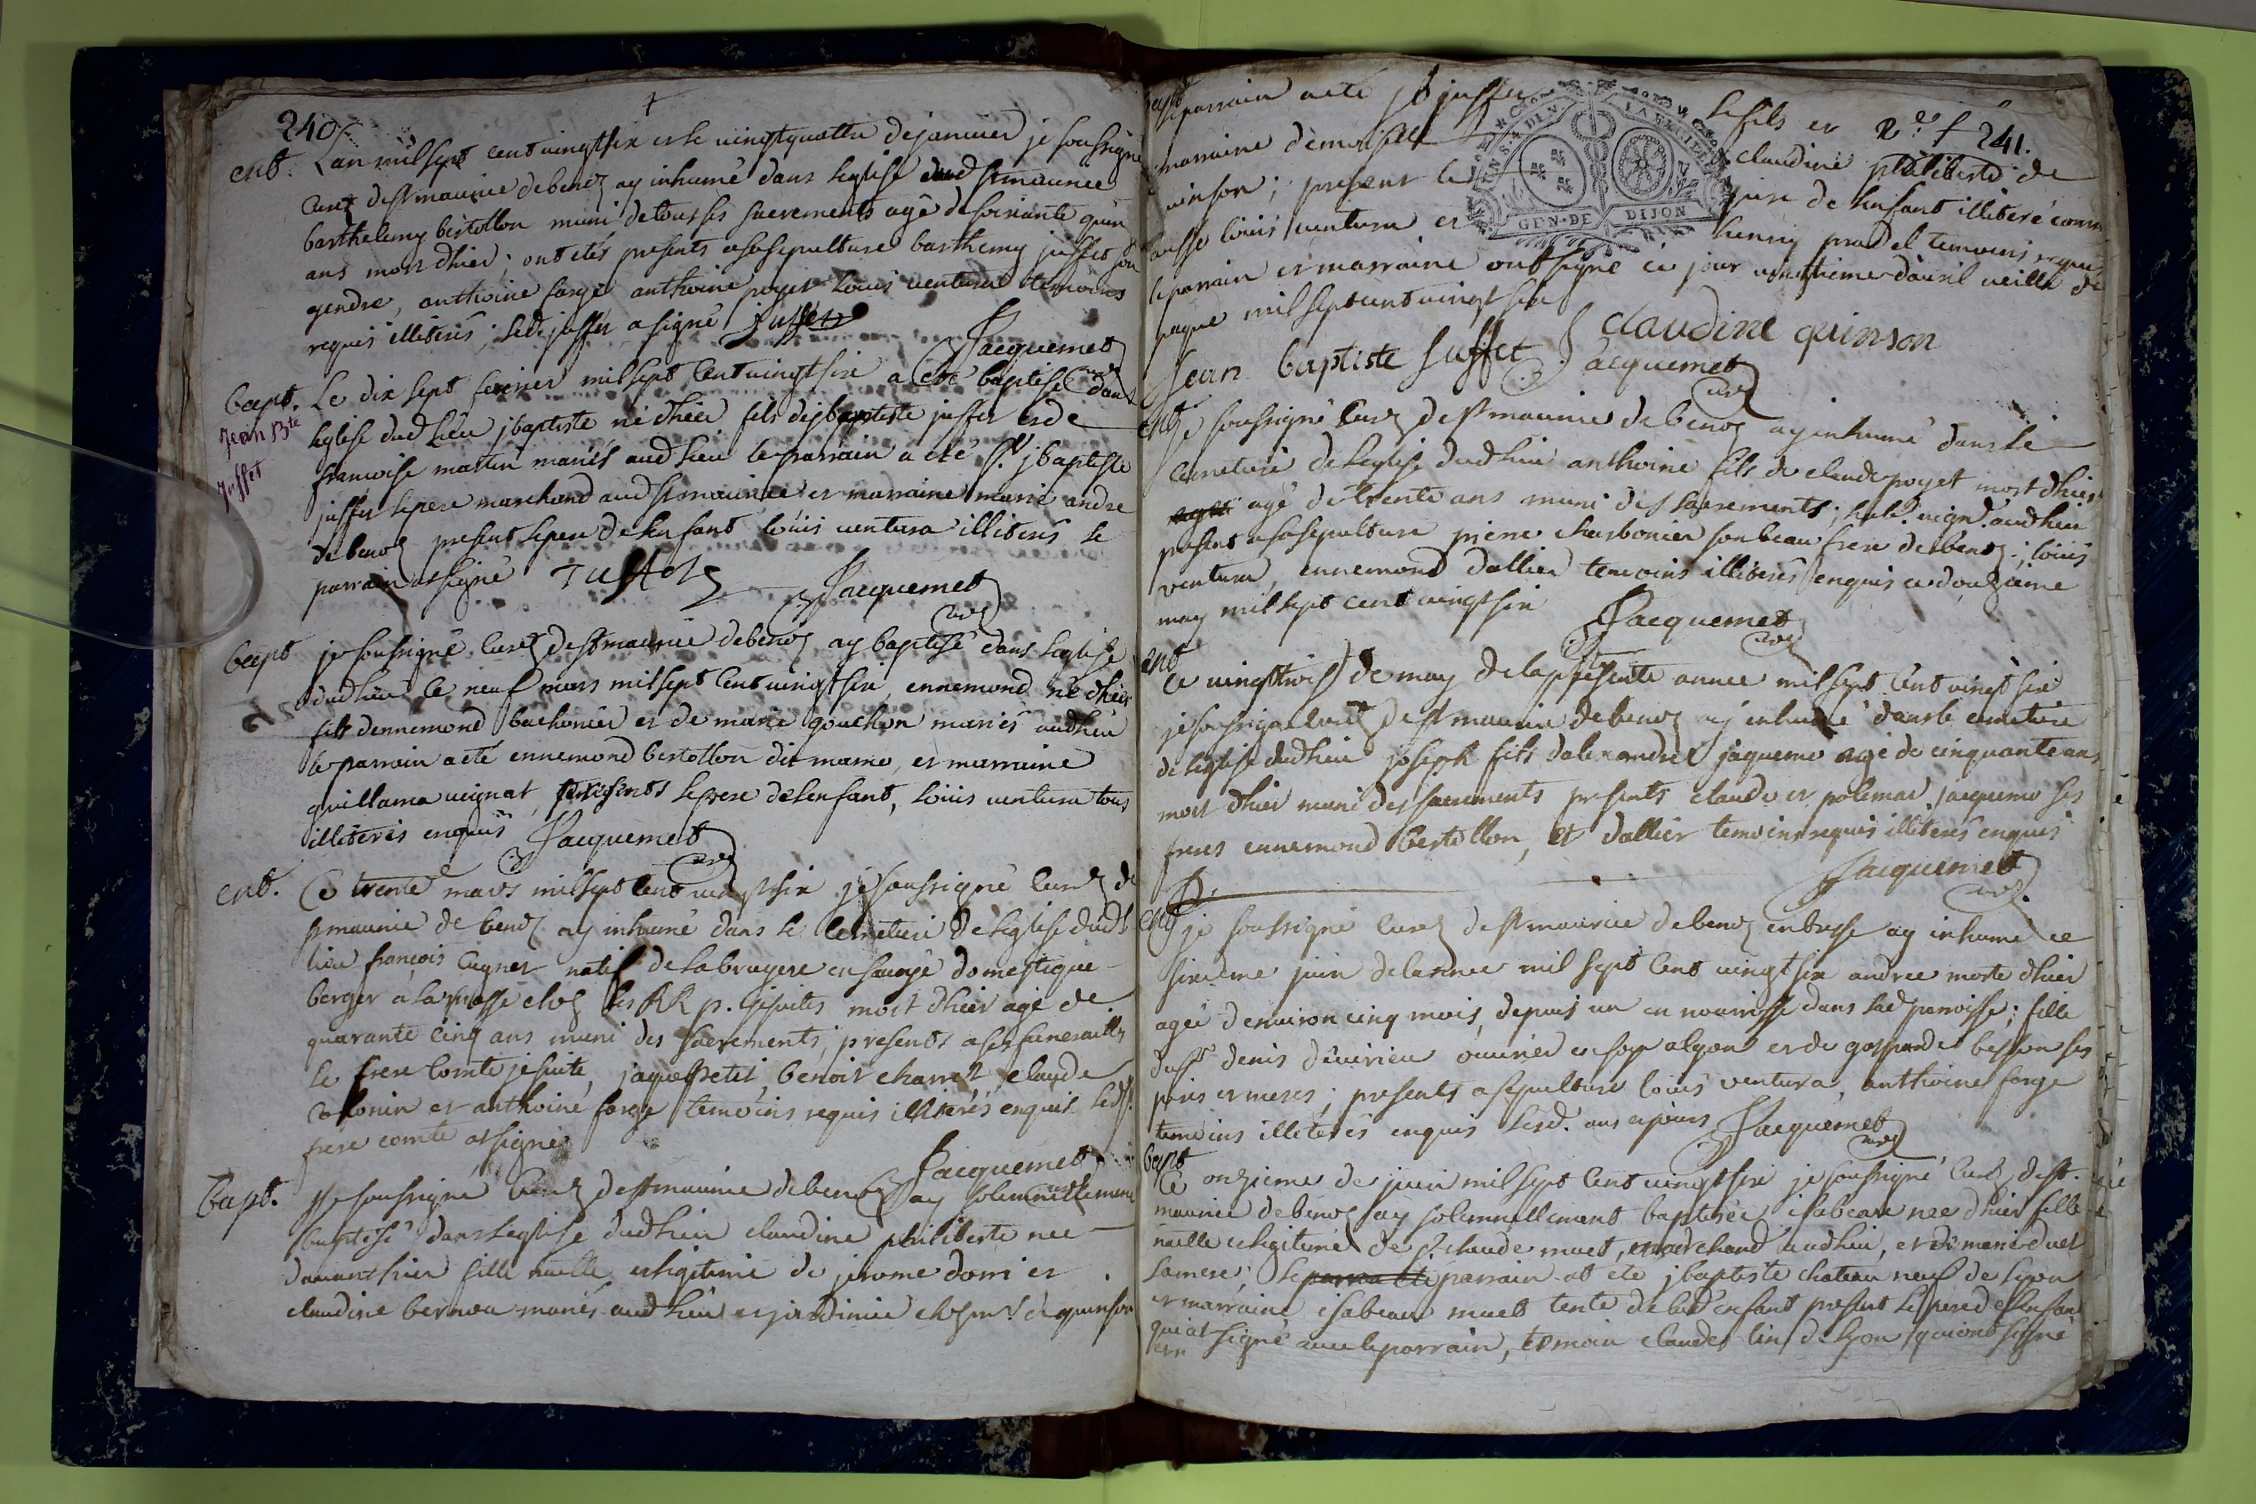 240
ent. Lan mil sept cent vingt six et le vingtquattre de janvier je soussigné
curez de st maurice de benoz ay inhumé dans leglise dud st maurice
barthelemy bertollon muni de tous ses sacrements agé de soixante quin
ans mort dhier; ont etés presents a sa sepulture barthemy juffet son
gendre, anthoine farge anthoine poyet louis ventura temoins
requis illiterés; led. juffet a signé juffet
Jacquemet
curé
bapt. Le dix sept fevrier mil sept cent vingt six a eté baptisé dans
Jean Bte
Juffet
leglise dud lieu jbaptiste né dhier fils de jbaptiste juffet et de
francoise martin mariés aud lieu le parrain a eté sr. jbaptiste
juffet le pere marchand aud st maurice et marraine marie andre
de benoz present le pere de lenfant louis ventura illiterés le
parrain at signé Juffet
Jacquemet
curé
bapt je soussigné curez de st maurice de benoz ay baptisé dans leglise
dud lieu ce neuf mars mil sept cent vingt six, ennemond né dhier
fils dennemond bachonier et de marie gouchon mariés aud lieu
le parrain a eté ennemond bertollon dit mamo, et marraine
guillama veignat, presents le pere de lenfant, louis ventura tous
illiterés enquis Jacquemet
curé
ent. Ce trente mars mil sept cent vingt six je soussigné curez de
st maurice de benoz ay inhumé dans le cemetiere de leglise dud
lieu françois cugnet natif de la bruyere en savoye domestique
berger a la passe chez les RR p. jesuites mort dhier agé de
quarante cinq ans muni des sacrements; presents a ses funerailles
le frere comte jesuite, jaque petit, benoit charret, claude
colonin et anthoine farge temoins requis illiterés enquis led
frere comte at signé
Jacquemet
curé
bapt. Je soussigné curez de st maurice de benoz ay solemnellement
baptisé dans leglise dud lieu claudine philiberte née
davant hier fille naturelle et legitime de jerome dorrier
claudine bernou mariés aud lieu et jardinier chez mr. de quinson
bapt
le parrain a eté jb juffet le fils et Re f 241.
marraine demoiselle claudine philiberte de
quinson; present le pere de lenfant illiteré comm
aussi louis ventura et henry pradel temoins requis
le parrain et marraine ont signé ce jour vingtieme davril veille de
paque mil sept cent vingt six
INS. DIN. LABEILLE
GEN. DE DIJON
Jean baptiste juffet claudine quinson
Jacquemet
curé
ent Je soussigné curez de st maurice de benoz ay inhumé dans le
cemetiere de leglise dud lieu anthoine fils de claude poyet mort dhier
agé de trente ans muni des sacrements; habt. vignr. aud lieu
present a sa sepulture pierre charbonier son beau frere de benoz; louis
ventura, ennemond dallier temoins illiterés enquis ce douzieme
may mil sept cent vingt six Jacquemet
curé
ent
Ce vingttrois de may de la presente année mil sept cent vingt six
je soussigné curez de st maurice de benoz ay inhumé dans le cemetiere
de leglise dud lieu joseph fils dalexandre jaquemo agé de cinquante ans
mort dhier muni des sacrements presents claude et polemar jacquemo ses
freres ennemond bertollon, et dallier temoins requis illiterés enquis
Jacquemet
curé
ent je soussigné curez de st maurice de benoz en bresse ay inhumé ce
sixieme juin de lannée mil sept cent vingt six andree morte dhier
agée denviron cinq mois, depuis un en nourrisse dans lad paroisse; fille
du sr denis devirieu ouvrier en soye a lyon et de gasparde besson ses
peres et meres; presents a sepulture louis ventura, anthoine farge
temoins illiterés enquis lesd. ans et jours Jacquemet
curé
bapt
Ce onzieme de juin mil sept cent vingt six je soussigné curez de st.
maurice de benoz ay solemnellement baptisée isabeau née dhier fille
naturelle et legitime de sr. claude muet, marchand aud lieu, et de marie duet
sa mere; le parrain at eté jbaptiste chateau neuf de lyon
et marraine isabeau muet tente de lad enfant present le pere de lenfant
qui at signé avec le parrain, temoin claude lin de lyon qui ont signé